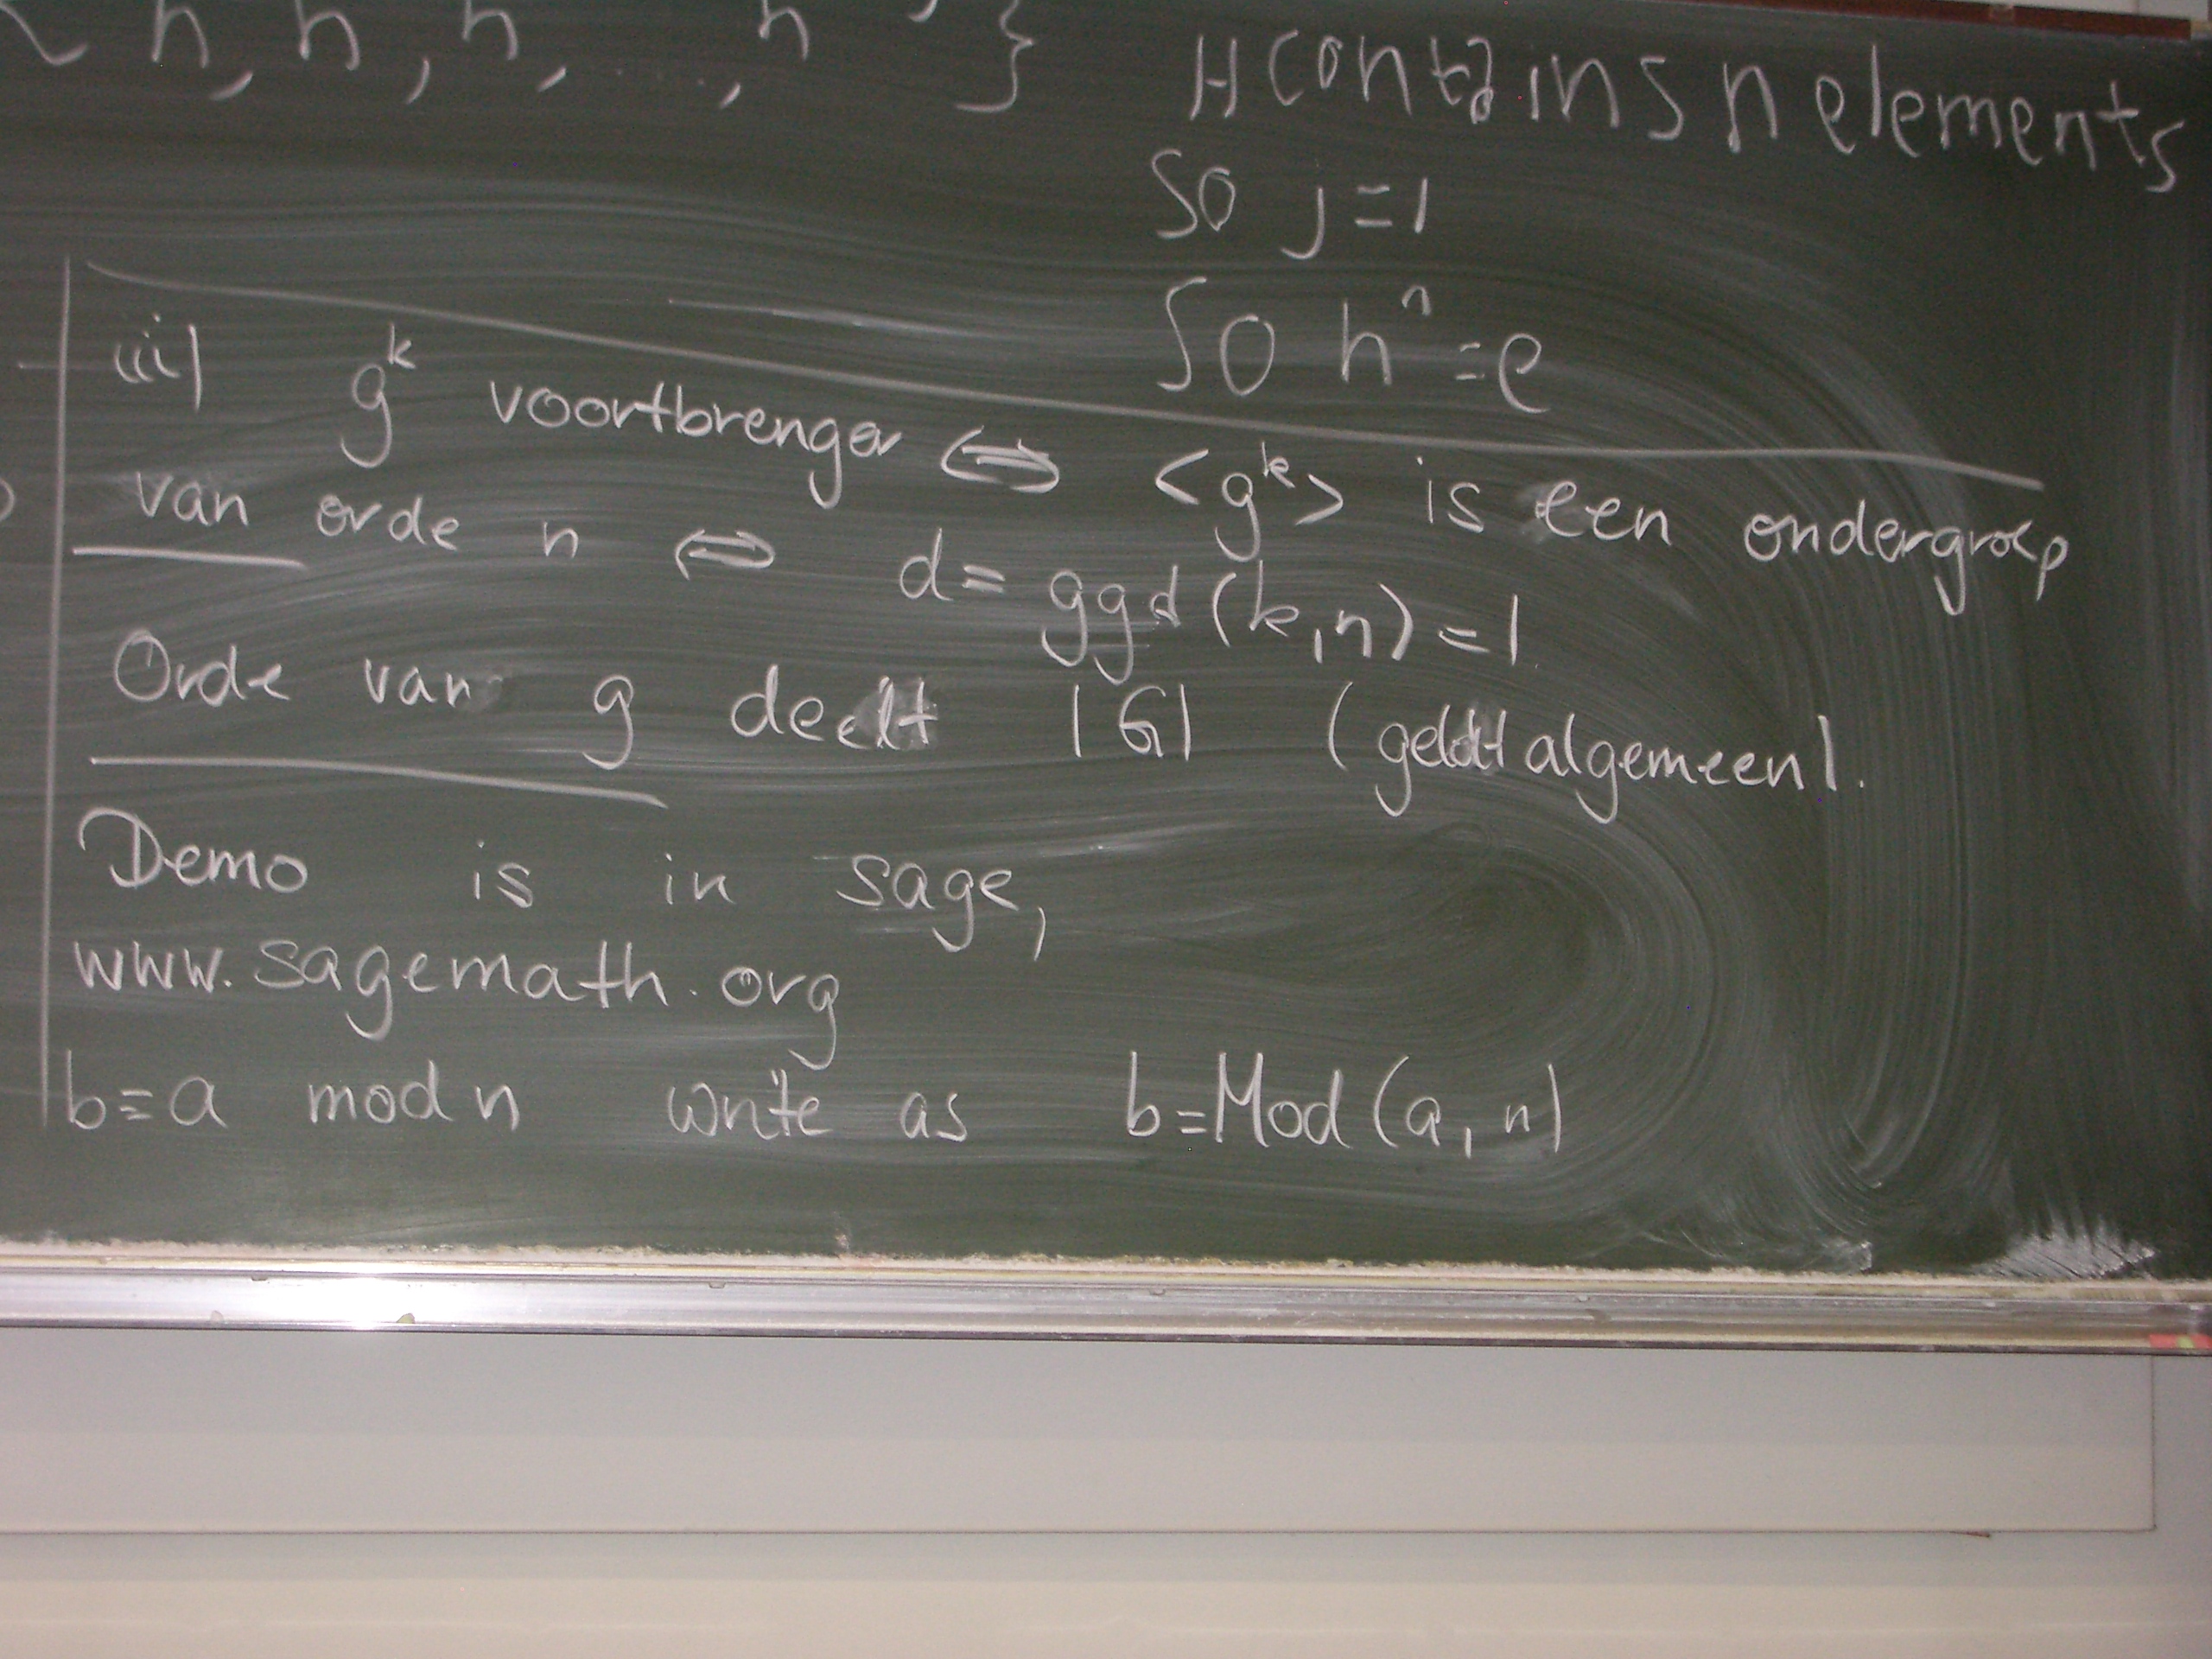 h, h, h, ..., h } H contains n elements
So j=1
So hⁿ=e
iii) gᵏ voortbrenger ⇔ <gᵏ> is een ondergroep
van orde n ⇔ d= ggd(k,n)=1
Orde van g deelt |G| (geldt algemeen).
Demo is in sage,
www.sagemath.org
b≡a mod n write as b=Mod(a,n)